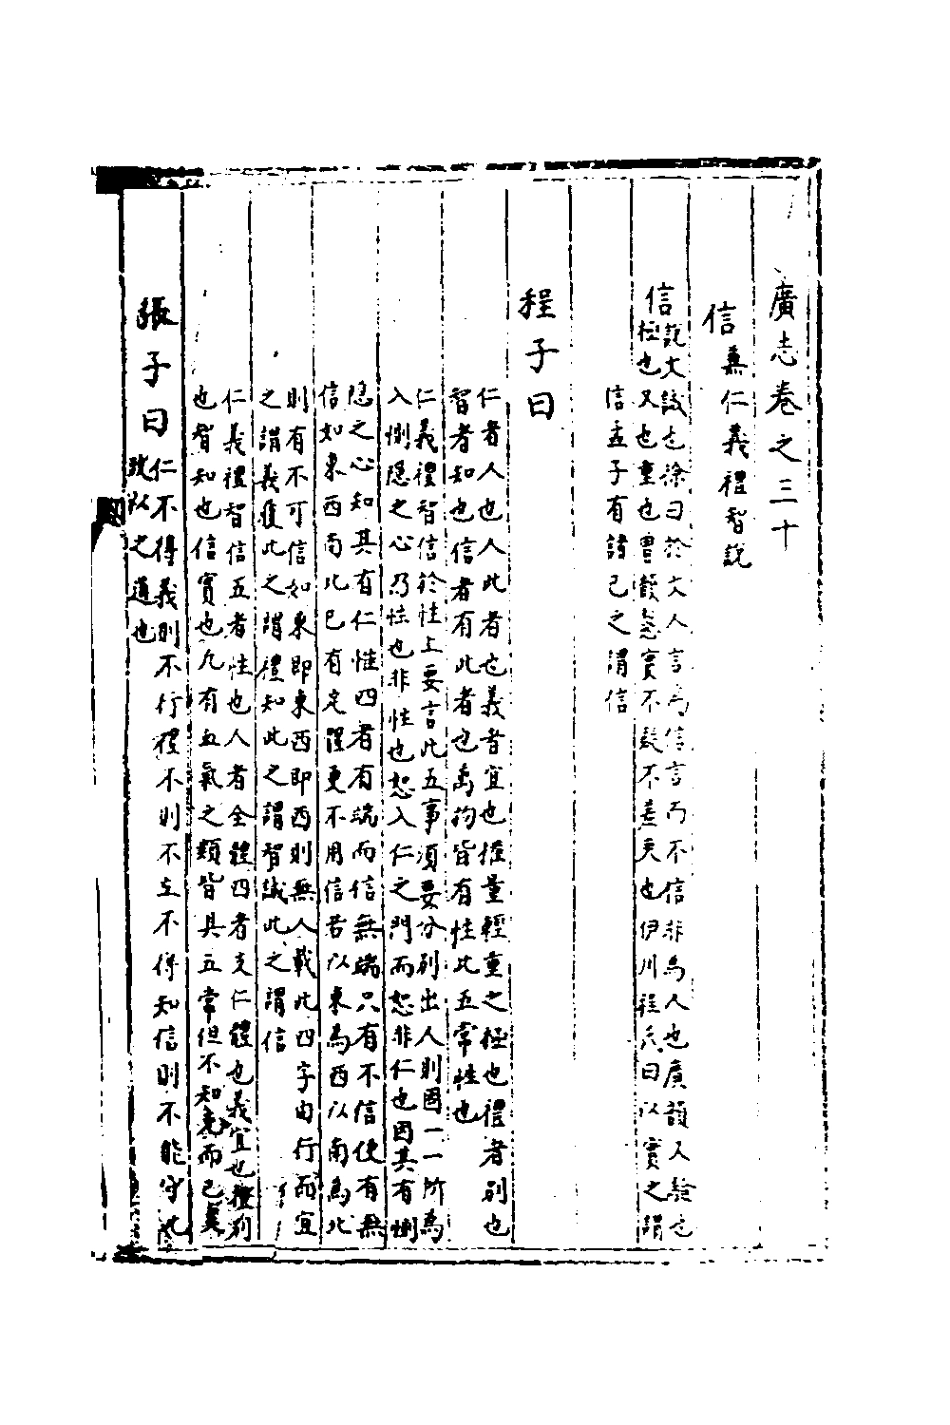 廣志卷之三十
信兼仁義禮智說
信
說文誠也徐曰於文人言為信言而不信非為人也廣韻又驗也
極也又也重也曹毅慤實不疑不差爽也伊川程氏曰以實之謂
信孟子有諸己之謂信
程子曰
仁者人也人此者也義者宜也權量輕重之極也禮者別也
智者知也信者有此者也萬物皆有性此五常性也
仁義禮智信於性上要言此五事須要分別出人則固一一所為
入惻隱之心乃性也非性也恕入仁之門而恕非仁也因其有惻
隱之心知其有仁惟四者有端而信無端只有不信便有無
信如東西南北已有定體更不用信若以東為西以南為北
則有不可信如東即東西即西則無人載此四字由行而宜
之謂義履此之謂禮知此之謂智誠此之謂信
仁義禮智信五者性也人者全體四者支仁體也義宜也禮別
也智知也信實也凡有血氣之類皆具五常但不知充而已矣
張子曰
仁不得義則不行禮不則不立不得知信則不能守此
致以之道也